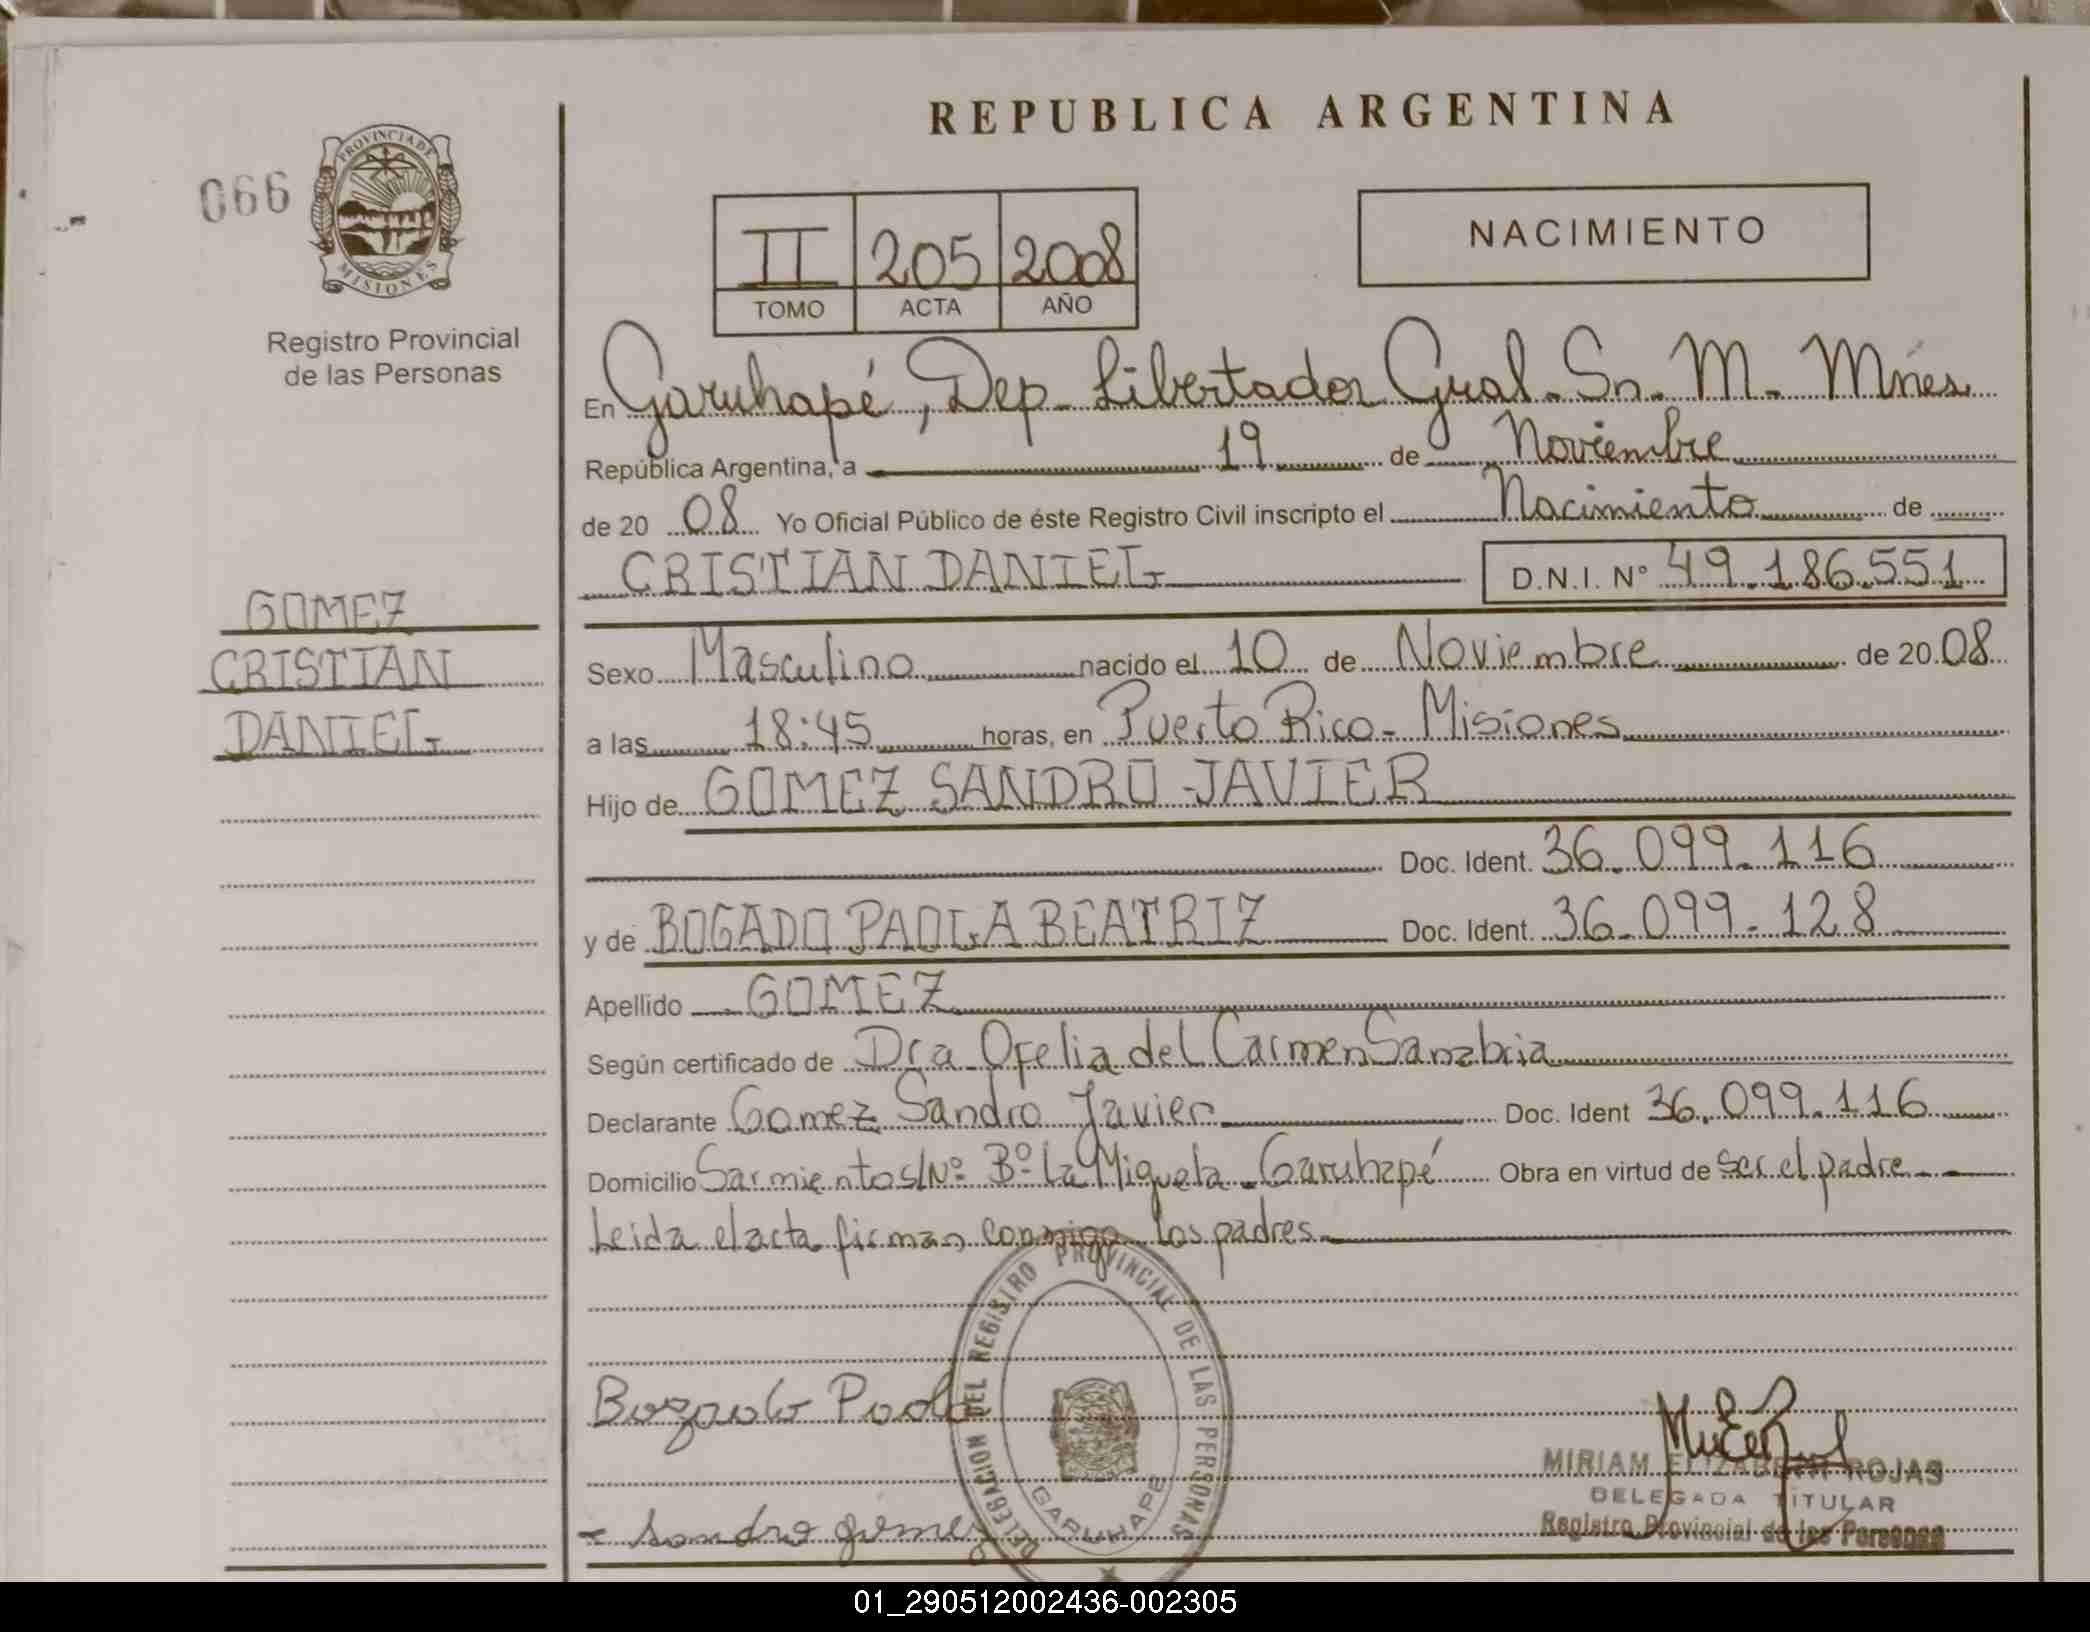 REPUBLICA ARGENTINA
066
PROVINCIA DE
MISIONES
Registro Provincial
de las Personas
II 205 2008
TOMO ACTA AÑO
NACIMIENTO
En Garuhapé, Dep. Libertador Gral. Sn. M. Mnes
República Argentina, a 19 de Noviembre
de 20 08 Yo Oficial Público de éste Registro Civil inscripto el Nacimiento de
CRISTIAN DANIEL D.N.I. Nº 49.186.551
GOMEZ
CRISTIAN
DANIEL
Sexo Masculino nacido el 10 de Noviembre de 20 08
a las 18:45 horas, en Puerto Rico - Misiones
Hijo de GOMEZ SANDRO JAVIER
Doc. Ident. 36.099.116
y de BOGADO PAOLA BEATRIZ Doc. Ident. 36.099.128
Apellido GOMEZ
Según certificado de Dra Ofelia del Carmen Sanabria
Declarante Gomez Sandro Javier Doc. Ident 36.099.116
Domicilio Sarmiento S/Nº Bº La Miguela - Garuhapé Obra en virtud de ser el padre
Leida el acta firman conmigo los padres
DELEGACION DEL REGISTRO PROVINCIAL DE LAS PERSONAS
GARUHAPE
Bogado Paola
Sandro gomez
MIRIAM ELIZABETH ROJAS
DELEGADA TITULAR
Registro Provincial de las Personas
01_290512002436-002305